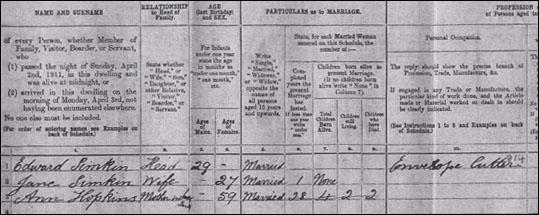 NAME AND SURNAME
RELATIONSHIP to Head of Family.
AGE (last Birthday) and SEX.
PARTICULARS as to MARRIAGE.
PROFESSION
of Persons aged te
of every Person, whether Member of Family, Visitor, Boarder, or Servant, who
(1) passed the night of Sunday, April 2nd, 1911, in this dwelling and was alive at midnight, or
(2) arrived in this dwelling on the morning of Monday, April 3rd, not having been enumerated elsewhere.
No one else must be included.
(For order of entering names see Examples on back of Schedule.)
State whether "Head," or "Wife," "Son," "Daughter," or other Relative, "Visitor," "Boarder," or "Servant."
For Infants under one year state the age in months as "under one month," "one month," etc.
Ages of Males.
Ages of Females.
Write "Single," "Married," "Widower," or "Widow," opposite the names of all persons aged 15 years and upwards.
State, for each Married Woman entered on this Schedule, the number of:—
Completed years the present Marriage has lasted. If less than one year write "under one."
Children born alive to present Marriage. (If no children born alive write "None" in Column 7).
Total Children Born Alive.
Children still Living.
Children who have Died.
Personal Occupation.
The reply should show the precise branch of Profession, Trade, Manufacture, &c.
If engaged in any Trade or Manufacture, the particular kind of work done, and the Article made or Material worked or dealt in should be clearly indicated.
(See Instructions 1 to 8 and Examples on back of Schedule.)
1 Edward Simkin Head 29 - Married Envelope Cutter
2 Jane Simkin Wife - 27 Married 1 None
3 Ann Hopkins Mother in law - 59 Married 28 4 2 2